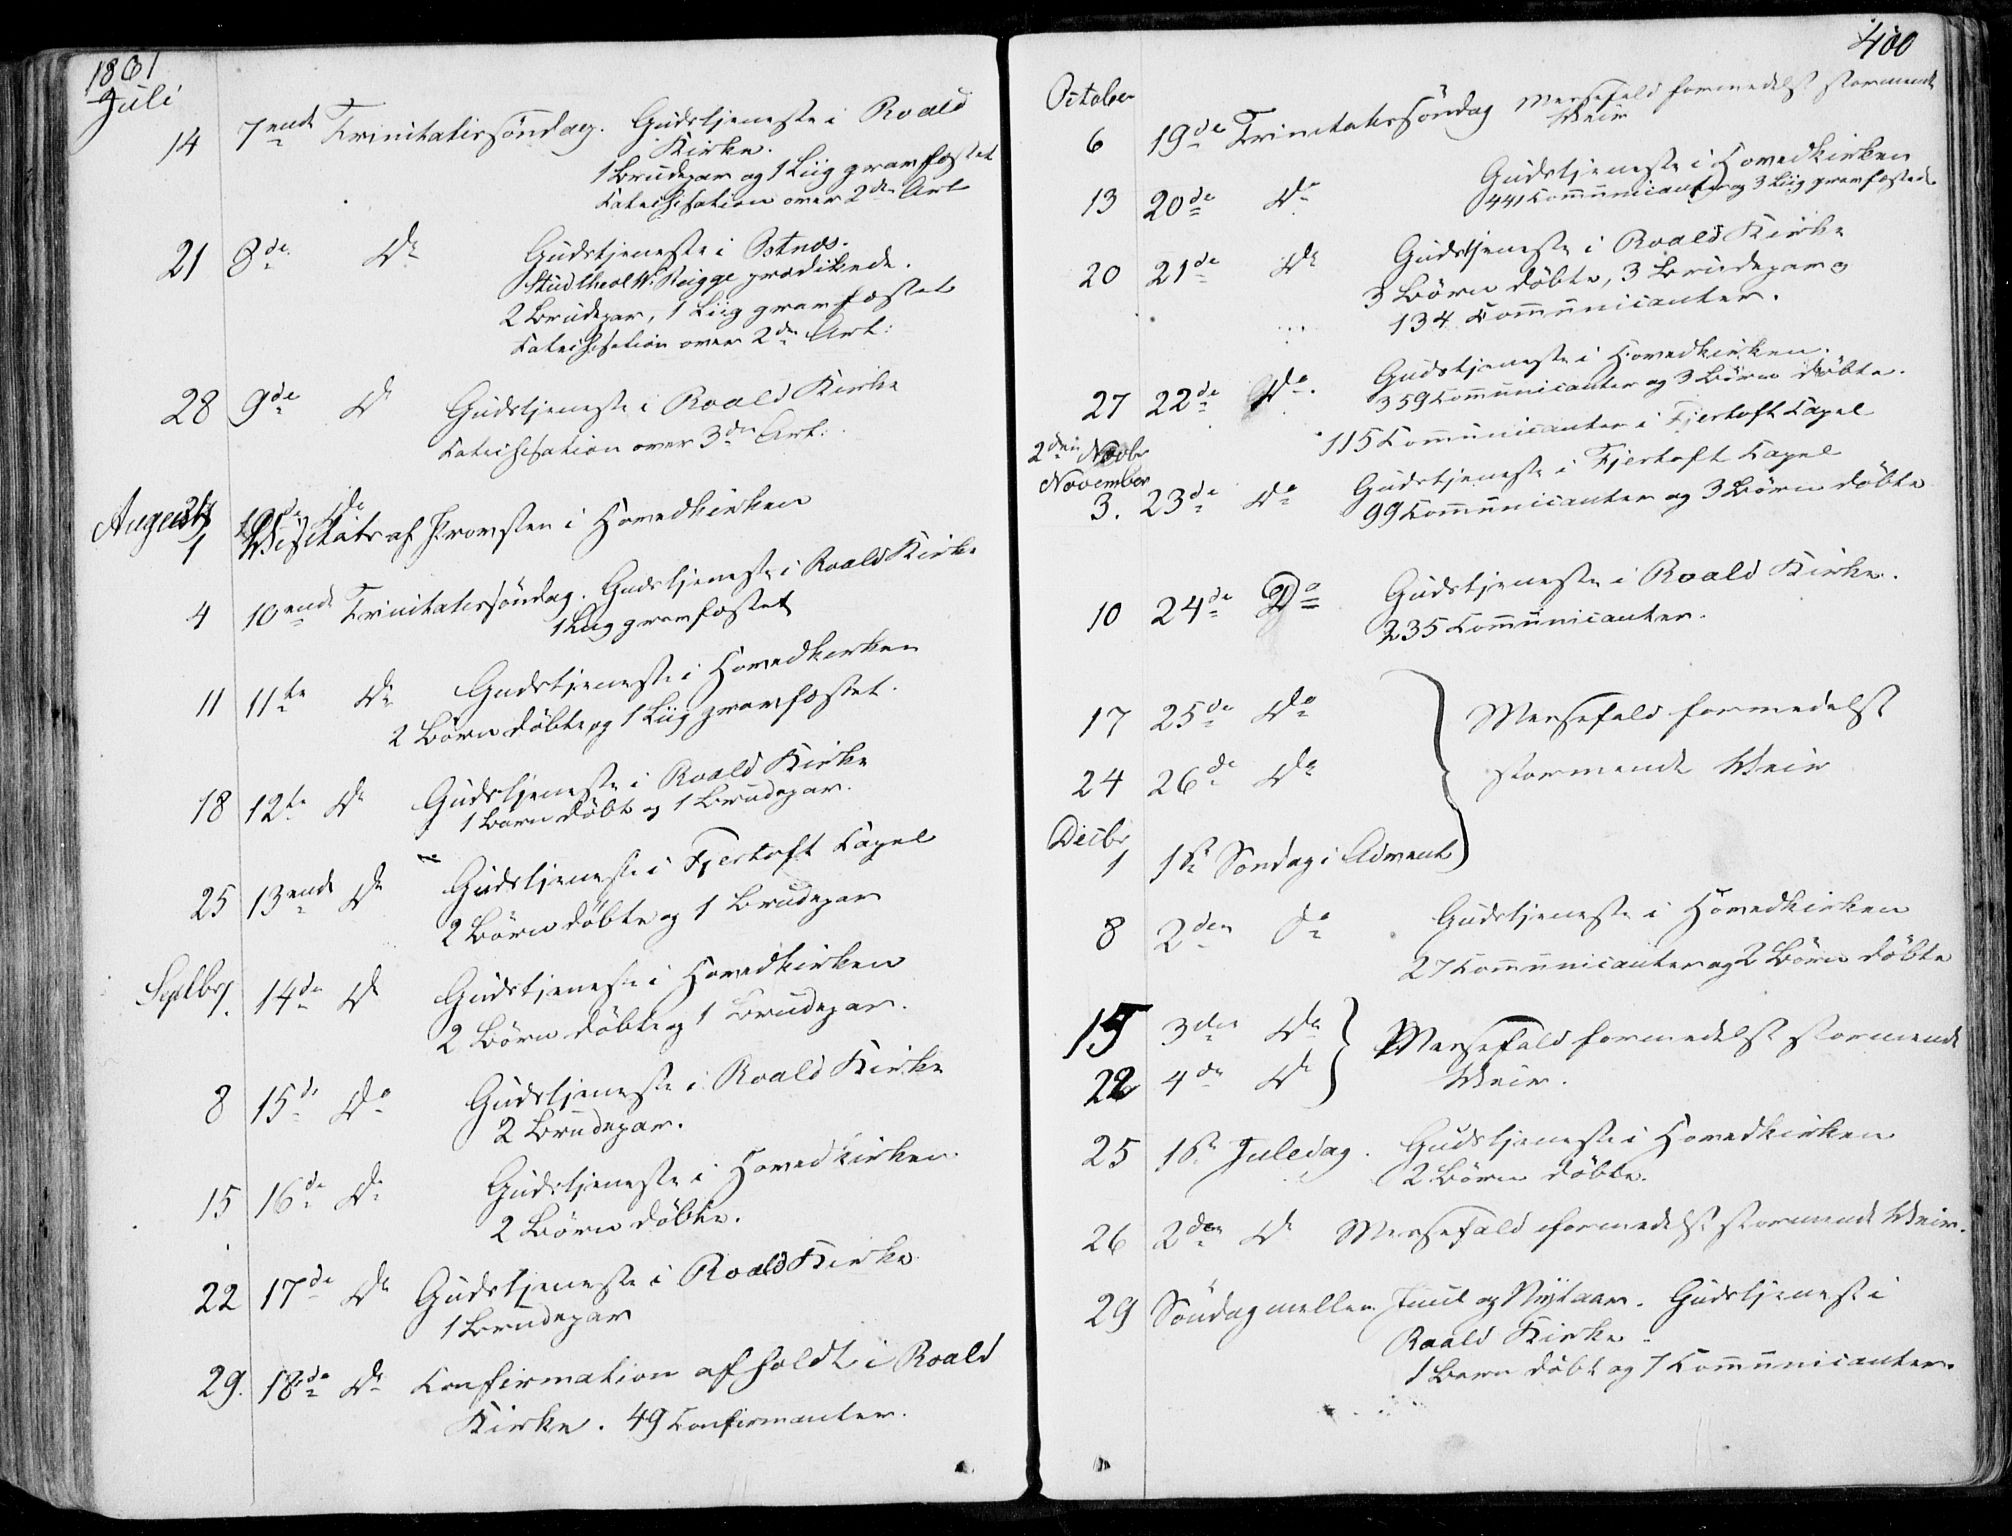 1861
Juli
14 7ende Trinitatissøndag. Gudstjeneste i Roald
Kirke.
1 Brudepar og 1 Liig gravfæstet
Catechisation over 2den Art
21 8de Do Gudstjeneste i Østnæs.
Stud theol W. prædikede.
2 Brudepar, 1 Liig gravfæstet
Catechisation over 2den Art:
28 9de Do Gudstjeneste i Roald Kirke
Catechisation over 3den Art:
August
1 Visitats af Provsten i Hovedkirken
4 10ende Trinitatissøndag. Gudstjeneste i Roald Kirke
1 Liig gravfæstet
11 11te Do Gudstjeneste i Hovedkirken
2 Børn døbte og 1 Liig gravfæstet.
18 12te Do Gudstjeneste i Roald Kirke
1 Barn døbt og 1 Brudepar.
25 13ende Do Gudstjeneste i Fjertoft Capel
2 Børn døbte og 1 Brudepar
Septbr 1. 14de Do Gudstjeneste i Hovedkirken
2 Børn døbte og 1 Brudepar.
8 15de Do Gudstjeneste i Roald Kirke
2 Brudepar.
15 16de Do Gudstjeneste i Hovedkirken.
2 Børn døbte.
22 17de Do Gudstjeneste i Roald Kirke
1 Brudepar
29. 18de Do Confirmation afholdt i Roald
Kirke. 49 Confirmanter.
400
October
6 19de Trinitatissøndag Messefald formedelst stormende
Veir
13 20de Do Gudstjeneste i Hovedkirken
441 Communicanter og 3 Liig gravfæstede
20 21de Do Gudstjeneste i Roald Kirke
3 Børn døbte, 3 Brudepar og
134 Communicanter.
27 22de Do. Gudstjeneste i Hovedkirken.
359 Communicanter og 3 Børn døbte.
2den Novbr 115 Communicanter i Fjertoft Capel
November
3. 23de Do Gudstjeneste i Fjertoft Capel
99 Communicanter og 3 Børn døbte
10 24de Do Gudstjeneste i Roald Kirke.
235 Communicanter.
17 25de Do Messefald formedelst
24 26de Do stormende Veir
Decbr
1 1ste Søndag i Advent
8 2den do Gudstjeneste i Hovedkirken
27 Communicanter og 2 Børn døbte
15 3den Do Messefald formedelst stormende
22 4de Do Veir.
25 1ste Juledag. Gudstjeneste i Hovedkirken
2 Børn døbte.
26 2den Do Messefald formedelst stormende Veir.
29 Søndag mellem Juul og Nytaar. Gudstjeneste i
Roald Kirke.
1 Barn døbt og 7 Communicanter.